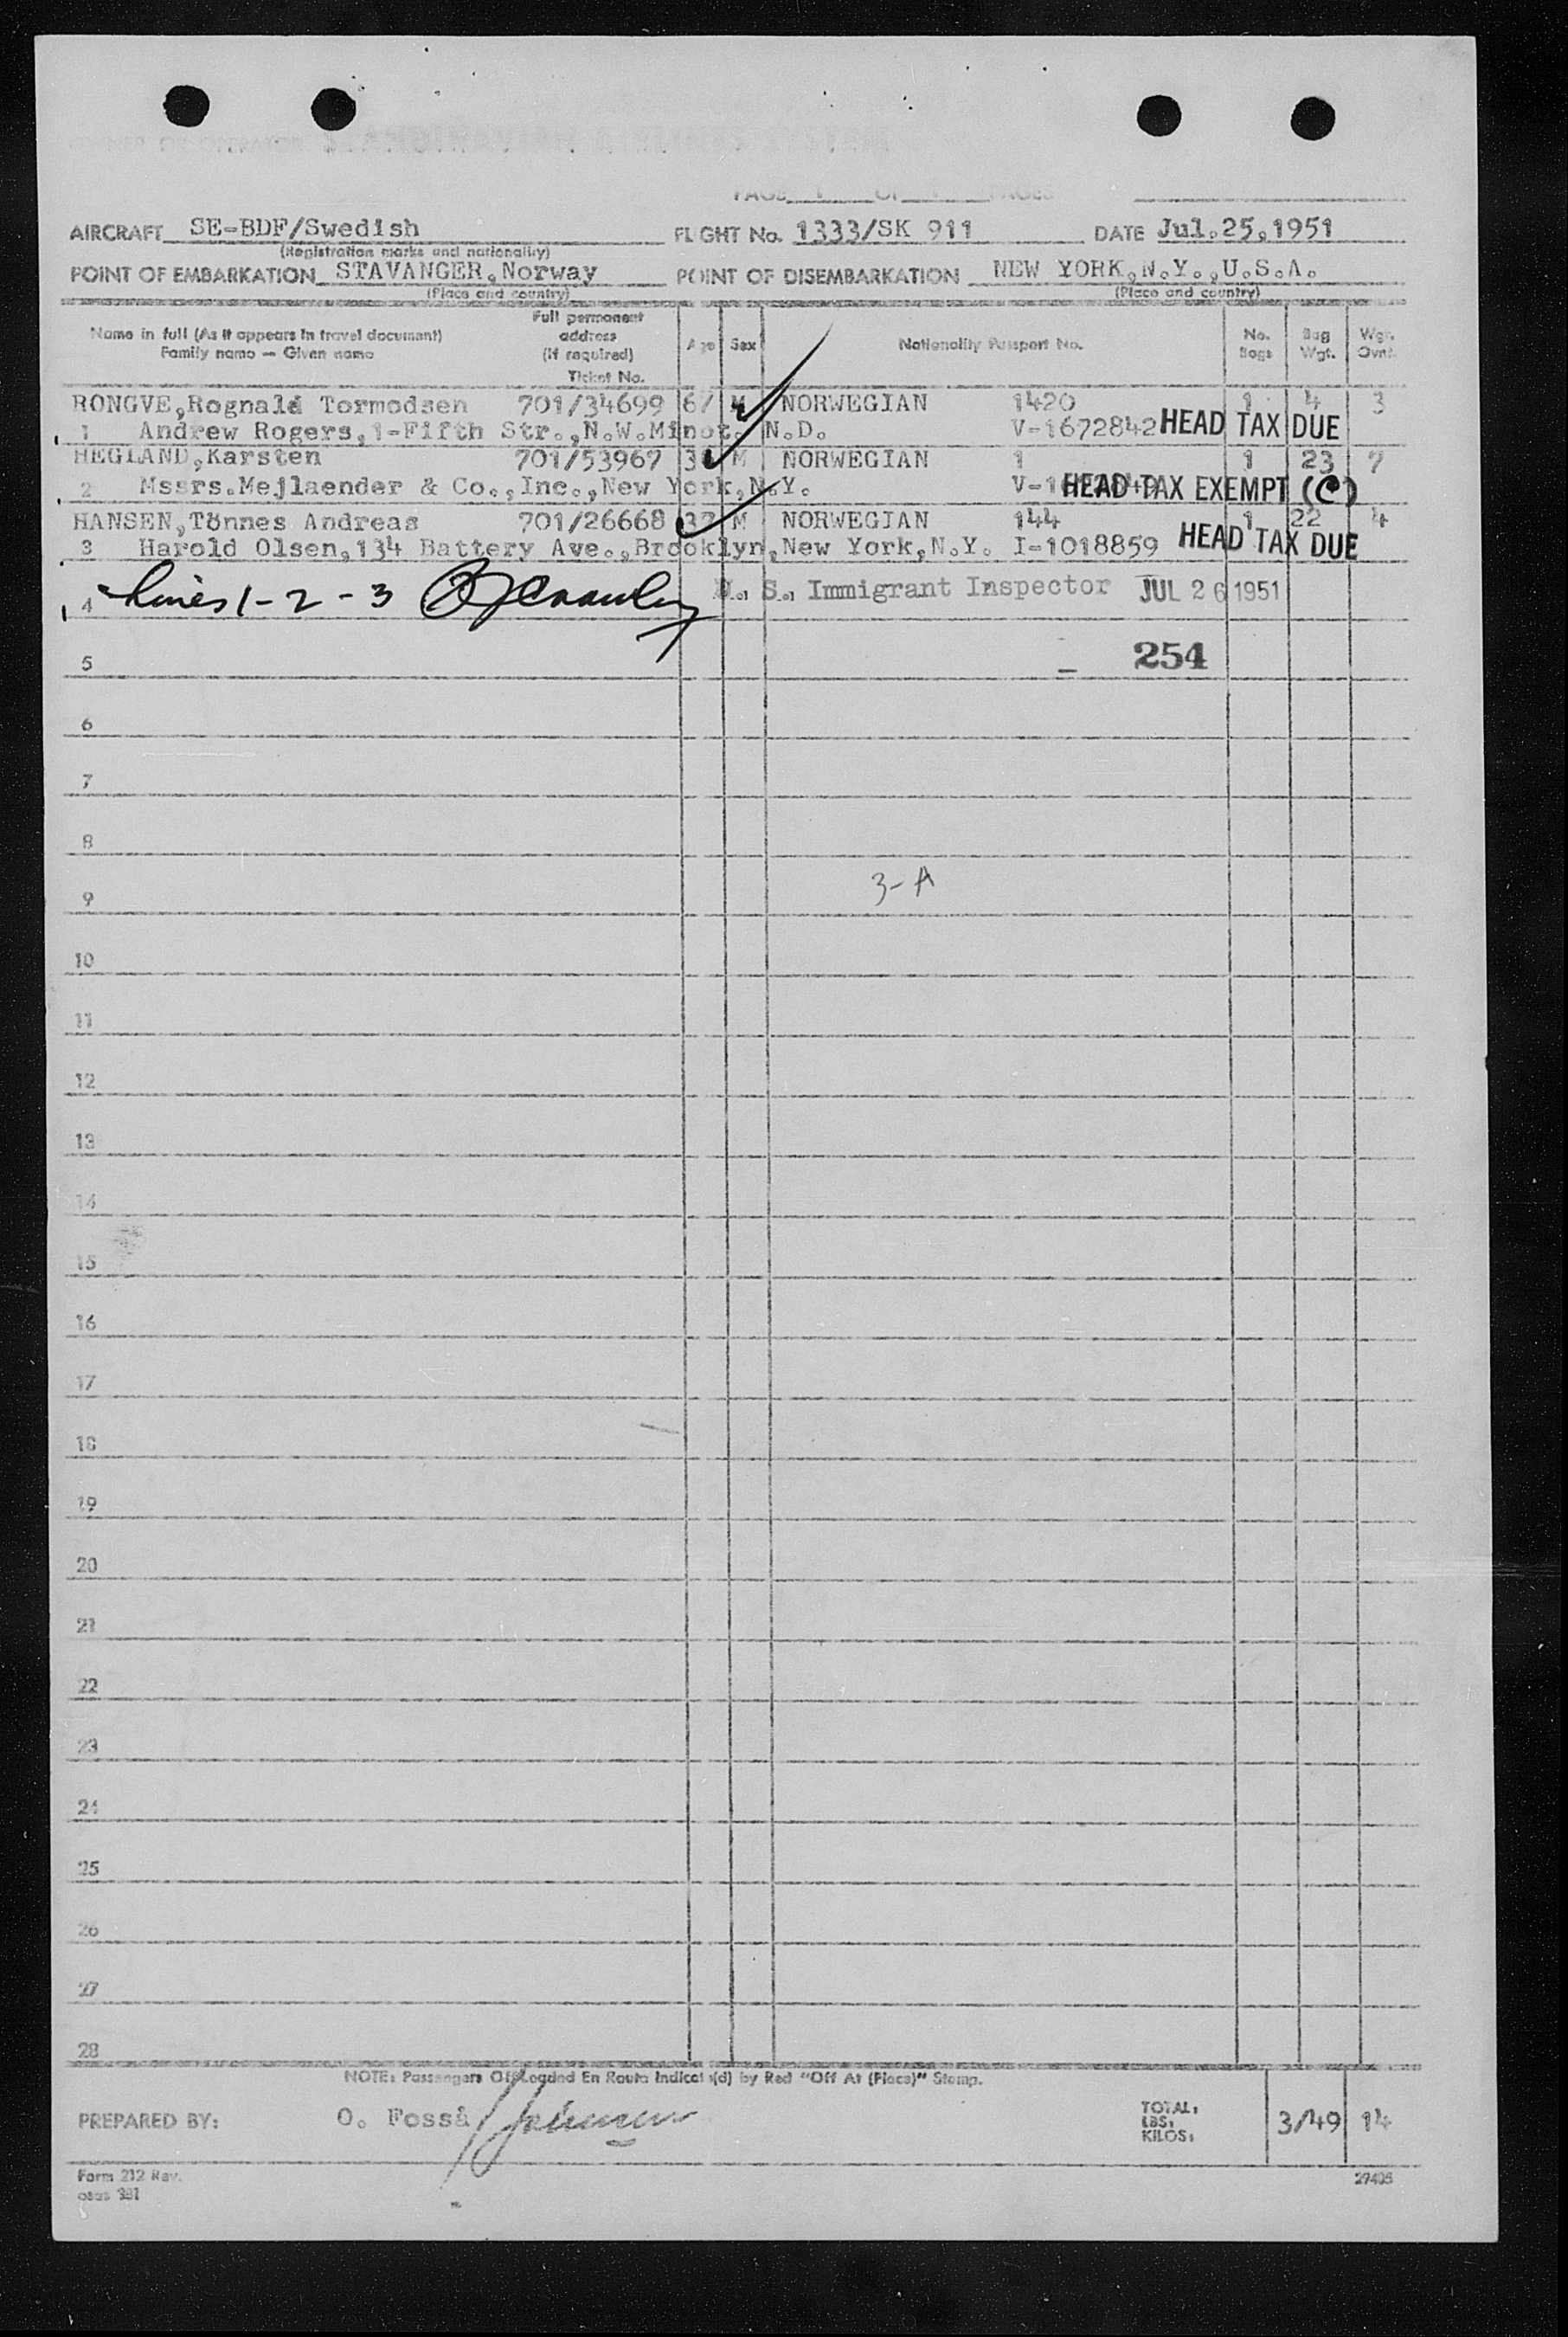 AIRCRAFT SE-BDF/Swedish FLIGHT No. 1333/SK 911 DATE Jul.25,1951
(Registration marks and nationality)
POINT OF EMBARKATION STAVANGER,Norway POINT OF DISEMBARKATION NEW YORK,N.Y.,U.S.A.
(Place and country) (Place and country)
Name in full (As it appears in travel document) Family name — Given name Full permanent address (If required) Ticket No. Age Sex Nationality Passport No. No. Bags Bag Wgt. Wgt.
RONGVE,Rognald Tormodsen 701/34699 67 M NORWEGIAN 1420 1 4 3
1 Andrew Rogers,1-Fifth Str.,N.W.Minot. N.D. V-1672842 HEAD TAX DUE
HEGLAND,Karsten 701/53967 M NORWEGIAN 1 1 23 7
2 Mssrs.Mejlaender & Co.,Inc.,New York,N.Y. HEAD TAX EXEMPT (C)
HANSEN,Tönnes Andreas 701/26668 37 M NORWEGIAN 144 1 22 4
3 Harold Olsen,134 Battery Ave.,Brooklyn,New York,N.Y. I-1018859 HEAD TAX DUE
4 Lines 1-2-3 U. S. Immigrant Inspector JUL 26 1951
5 254
6
7
8
9 3-A
10
11
12
13
14
15
16
17
18
19
20
21
22
23
24
25
26
27
28
NOTE: Passengers Offloaded En Route Indicated by Red "Off At (Place)" Stamp.
PREPARED BY: O. Fosså TOTAL: LBS: KILOS: 3/49 14
Form 212 Rev. 27405